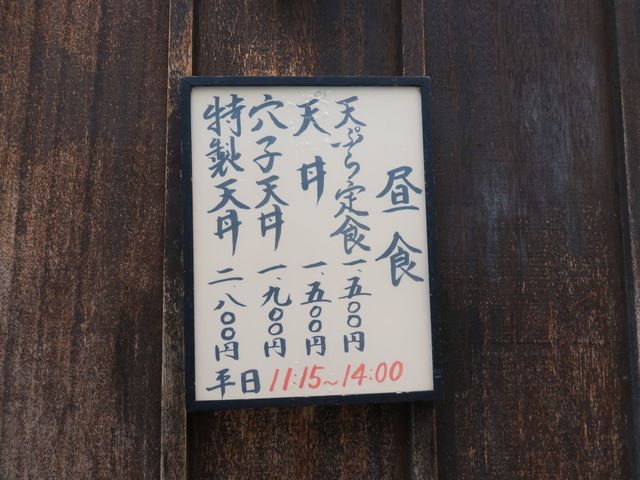 昼食
天ぷら定食 一、五〇〇円
天丼 一、五〇〇円
穴子天丼 一、九〇〇円
特製天丼 二、八〇〇円
平日 11:15~14:00